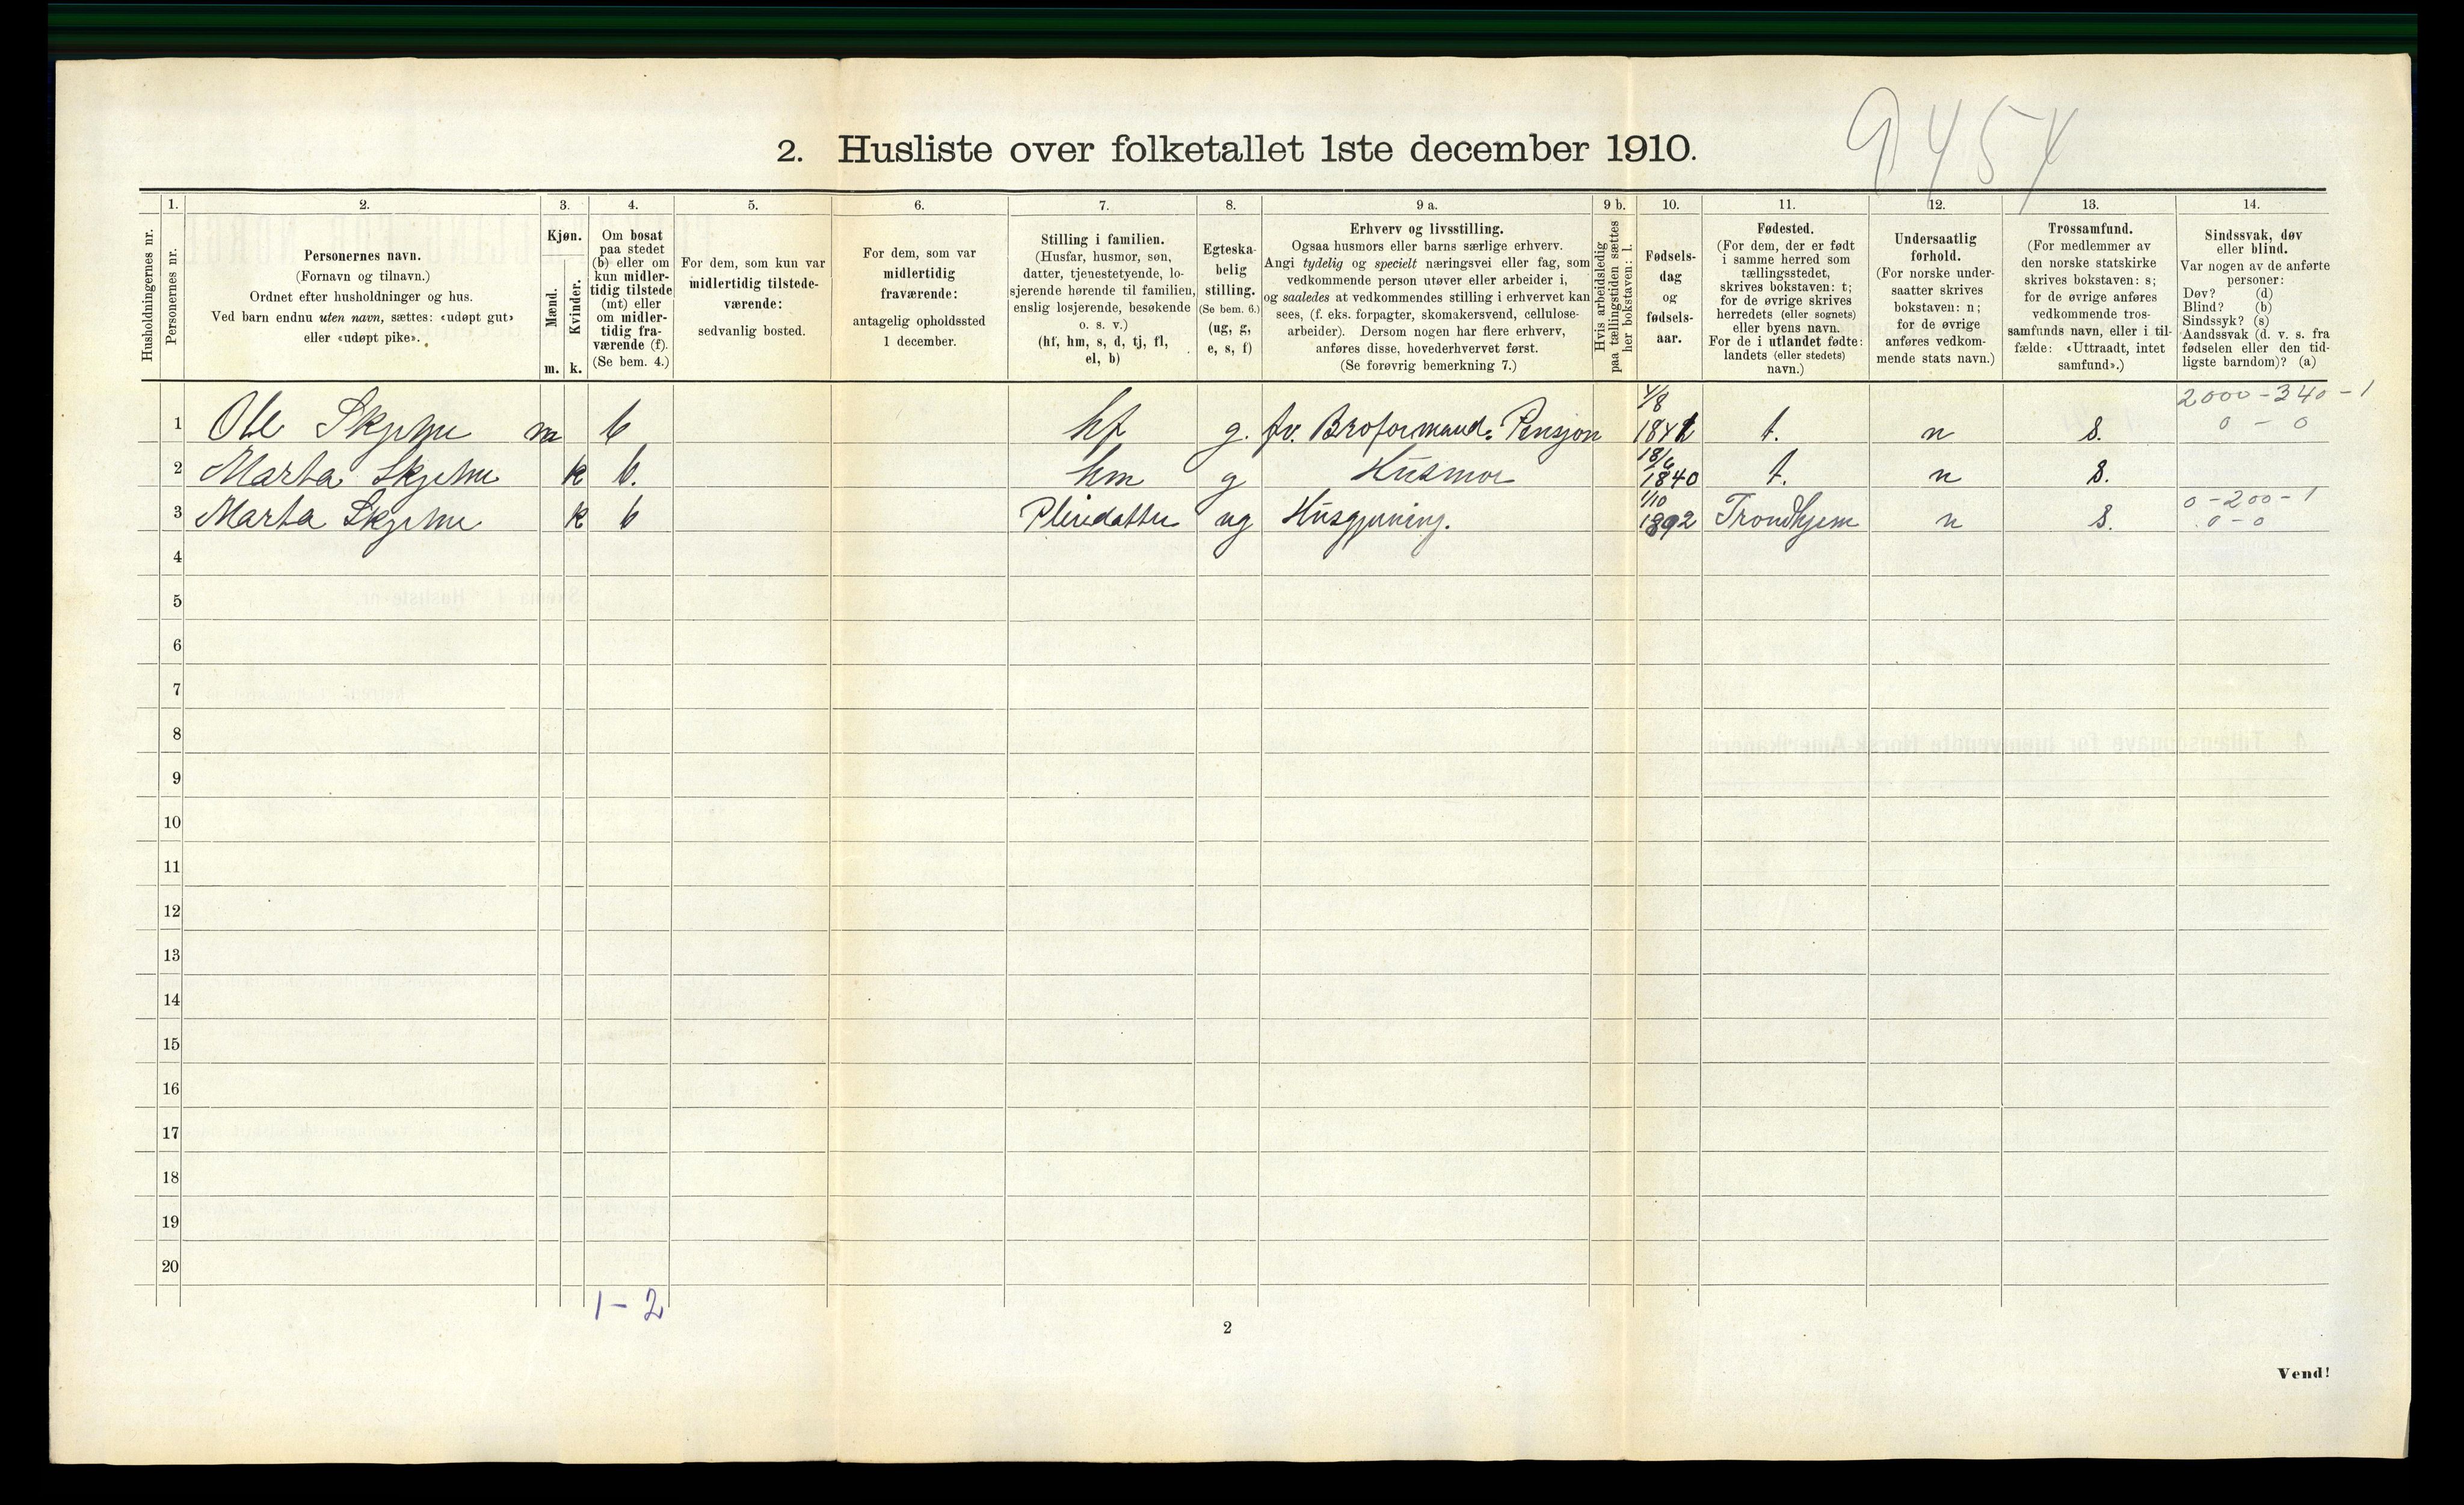 9454
2. Husliste over folketallet 1ste december 1910.
Husholdningernes nr.
1. Personernes nr.
2. Personernes navn. (Fornavn og tilnavn.) Ordnet efter husholdninger og hus. Ved barn endnu uten navn, sættes: «udøpt gut» eller «udøpt pike».
3. Kjøn. Mænd. m. Kvinder. k.
4. Om bosat paa stedet (b) eller om kun midler-tidig tilstede (mt) eller om midler-tidig fra-værende (f). (Se bem. 4.)
5. For dem, som kun var midlertidig tilstede-værende: sedvanlig bosted.
6. For dem, som var midlertidig fraværende: antagelig opholdssted 1 december.
7. Stilling i familien. (Husfar, husmor, søn, datter, tjenestetyende, lo-sjerende hørende til familien, enslig losjerende, besøkende o. s. v.) (hf, hm, s, d, tj, fl, el, b)
8. Egteska-belig stilling. (Se bem. 6.) (ug, g, e, s, f)
9 a. Erhverv og livsstilling. Ogsaa husmors eller barns særlige erhverv. Angi tydelig og specielt næringsvei eller fag, som vedkommende person utøver eller arbeider i, og saaledes at vedkommendes stilling i erhvervet kan sees, (f. eks. forpagter, skomakersvend, cellulose-arbeider). Dersom nogen har flere erhverv, anføres disse, hovederhvervet først. (Se forøvrig bemerkning 7.)
9 b. Hvis arbeidsledig paa tællingstiden sættes her bokstaven: l.
10. Fødsels-dag og fødsels-aar.
11. Fødested. (For dem, der er født i samme herred som tællingsstedet, skrives bokstaven: t; for de øvrige skrives herredets (eller sognets) eller byens navn. For de i utlandet fødte: landets (eller stedets) navn.)
12. Undersaatlig forhold. (For norske under-saatter skrives bokstaven: n; for de øvrige anføres vedkom-mende stats navn.)
13. Trossamfund. (For medlemmer av den norske statskirke skrives bokstaven: s; for de øvrige anføres vedkommende tros-samfunds navn, eller i til-fælde: «Uttraadt, intet samfund».)
14. Sindssvak, døv eller blind. Var nogen av de anførte personer: Døv? (d) Blind? (b) Sindssyk? (s) Aandssvak (d. v. s. fra fødselen eller den tid-ligste barndom)? (a)
1 Ole Skjelne m b hf g. fv. Broformand. Pensjon 4/8 1841 t. n s. 2000-340-1 0-0
2 Marta Skjelne k b. hm g Husmor 18/6 1840 t. n s.
3 Marta Skjelne k b Pleiedatter ug Husgjerning. 1/10 1892 Trondhjem n s. 0-200-1 0-0
4
5
6
7
8
9
10
11
12
13
14
15
16
17
18
19
20
1-2
2
Vend!